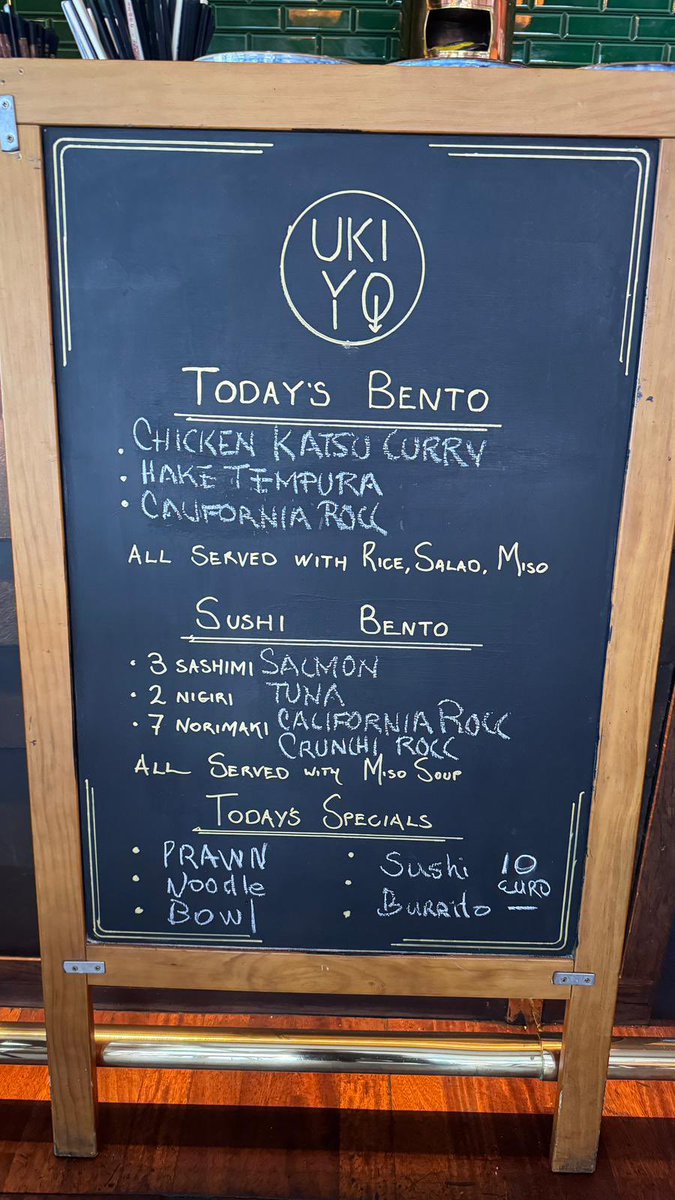 UKI
YO
TODAY'S BENTO
. CHICKEN KATSU CURRY
• HAKE TEMPURA
• CALIFORNIA ROLL
ALL SERVED WITH RICE, SALAD, MISO
SUSHI BENTO
• 3 SASHIMI SALMON
• 2 NIGIRI TUNA
• 7 NORIMAKI CALIFORNIA ROLL
CRUNCHI ROLL
ALL SERVED WITH MISO SOUP
TODAY'S SPECIALS
• PRAWN
• Noodle
• BOWL
• Sushi 10
EURO
• BURRITO —